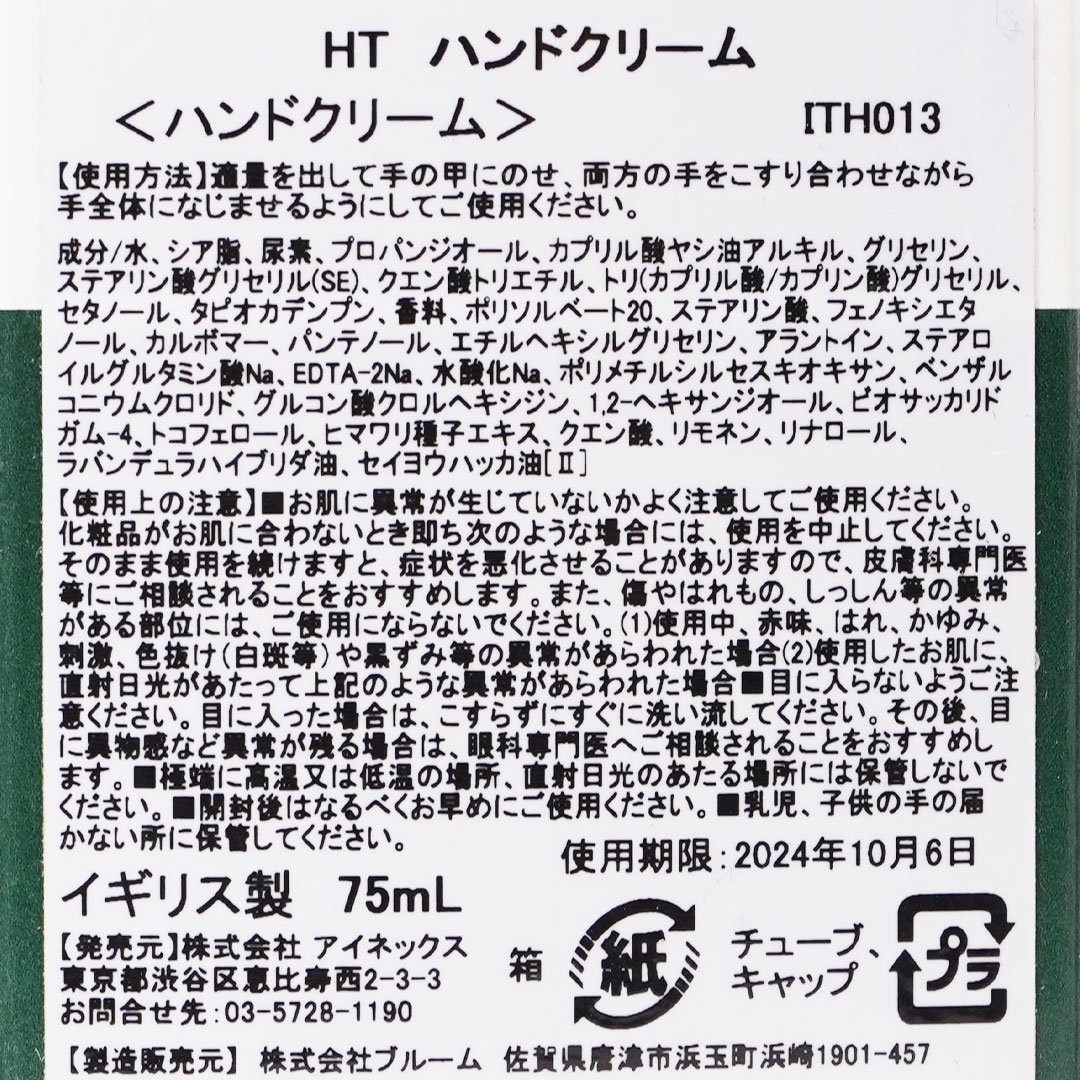 HT ハンドクリーム
＜ハンドクリーム＞ ITH013
【使用方法】適量を出して手の甲にのせ、両方の手をこすり合わせながら
手全体になじませるようにしてご使用ください。
成分/水、シア脂、尿素、プロパンジオール、カプリル酸ヤシ油アルキル、グリセリン、
ステアリン酸グリセリル(SE)、クエン酸トリエチル、トリ(カプリル酸/カプリン酸)グリセリル、
セタノール、タピオカデンプン、香料、ポリソルベート20、ステアリン酸、フェノキシエタ
ノール、カルボマー、パンテノール、エチルヘキシルグリセリン、アラントイン、ステアロ
イルグルタミン酸Na、EDTA-2Na、水酸化Na、ポリメチルシルセスキオキサン、ベンザル
コニウムクロリド、グルコン酸クロルヘキシジン、1,2-ヘキサンジオール、ビオサッカリド
ガム-4、トコフェロール、ヒマワリ種子エキス、クエン酸、リモネン、リナロール、
ラバンデュラハイブリダ油、セイヨウハッカ油[Ⅱ]
【使用上の注意】■お肌に異常が生じていないかよく注意してご使用ください。
化粧品がお肌に合わないとき即ち次のような場合には、使用を中止してください。
そのまま使用を続けますと、症状を悪化させることがありますので、皮膚科専門医
等にご相談されることをおすすめします。また、傷やはれもの、しっしん等の異常
がある部位には、ご使用にならないでください。(1)使用中、赤味、はれ、かゆみ、
刺激、色抜け(白斑等)や黒ずみ等の異常があらわれた場合(2)使用したお肌に、
直射日光があたって上記のような異常があらわれた場合■目に入らないようご注
意ください。目に入った場合は、こすらずにすぐに洗い流してください。その後、目
に異物感など異常が残る場合は、眼科専門医へご相談されることをおすすめし
ます。■極端に高温又は低温の場所、直射日光のあたる場所には保管しないで
ください。■開封後はなるべくお早めにご使用ください。■乳児、子供の手の届
かない所に保管してください。
使用期限:2024年10月6日
イギリス製 75mL
【発売元】株式会社 アイネックス
東京都渋谷区恵比寿西2-3-3
お問合せ先:03-5728-1190
箱 紙 チューブ、
キャップ プラ
【製造販売元】 株式会社ブルーム 佐賀県唐津市浜玉町浜崎1901-457